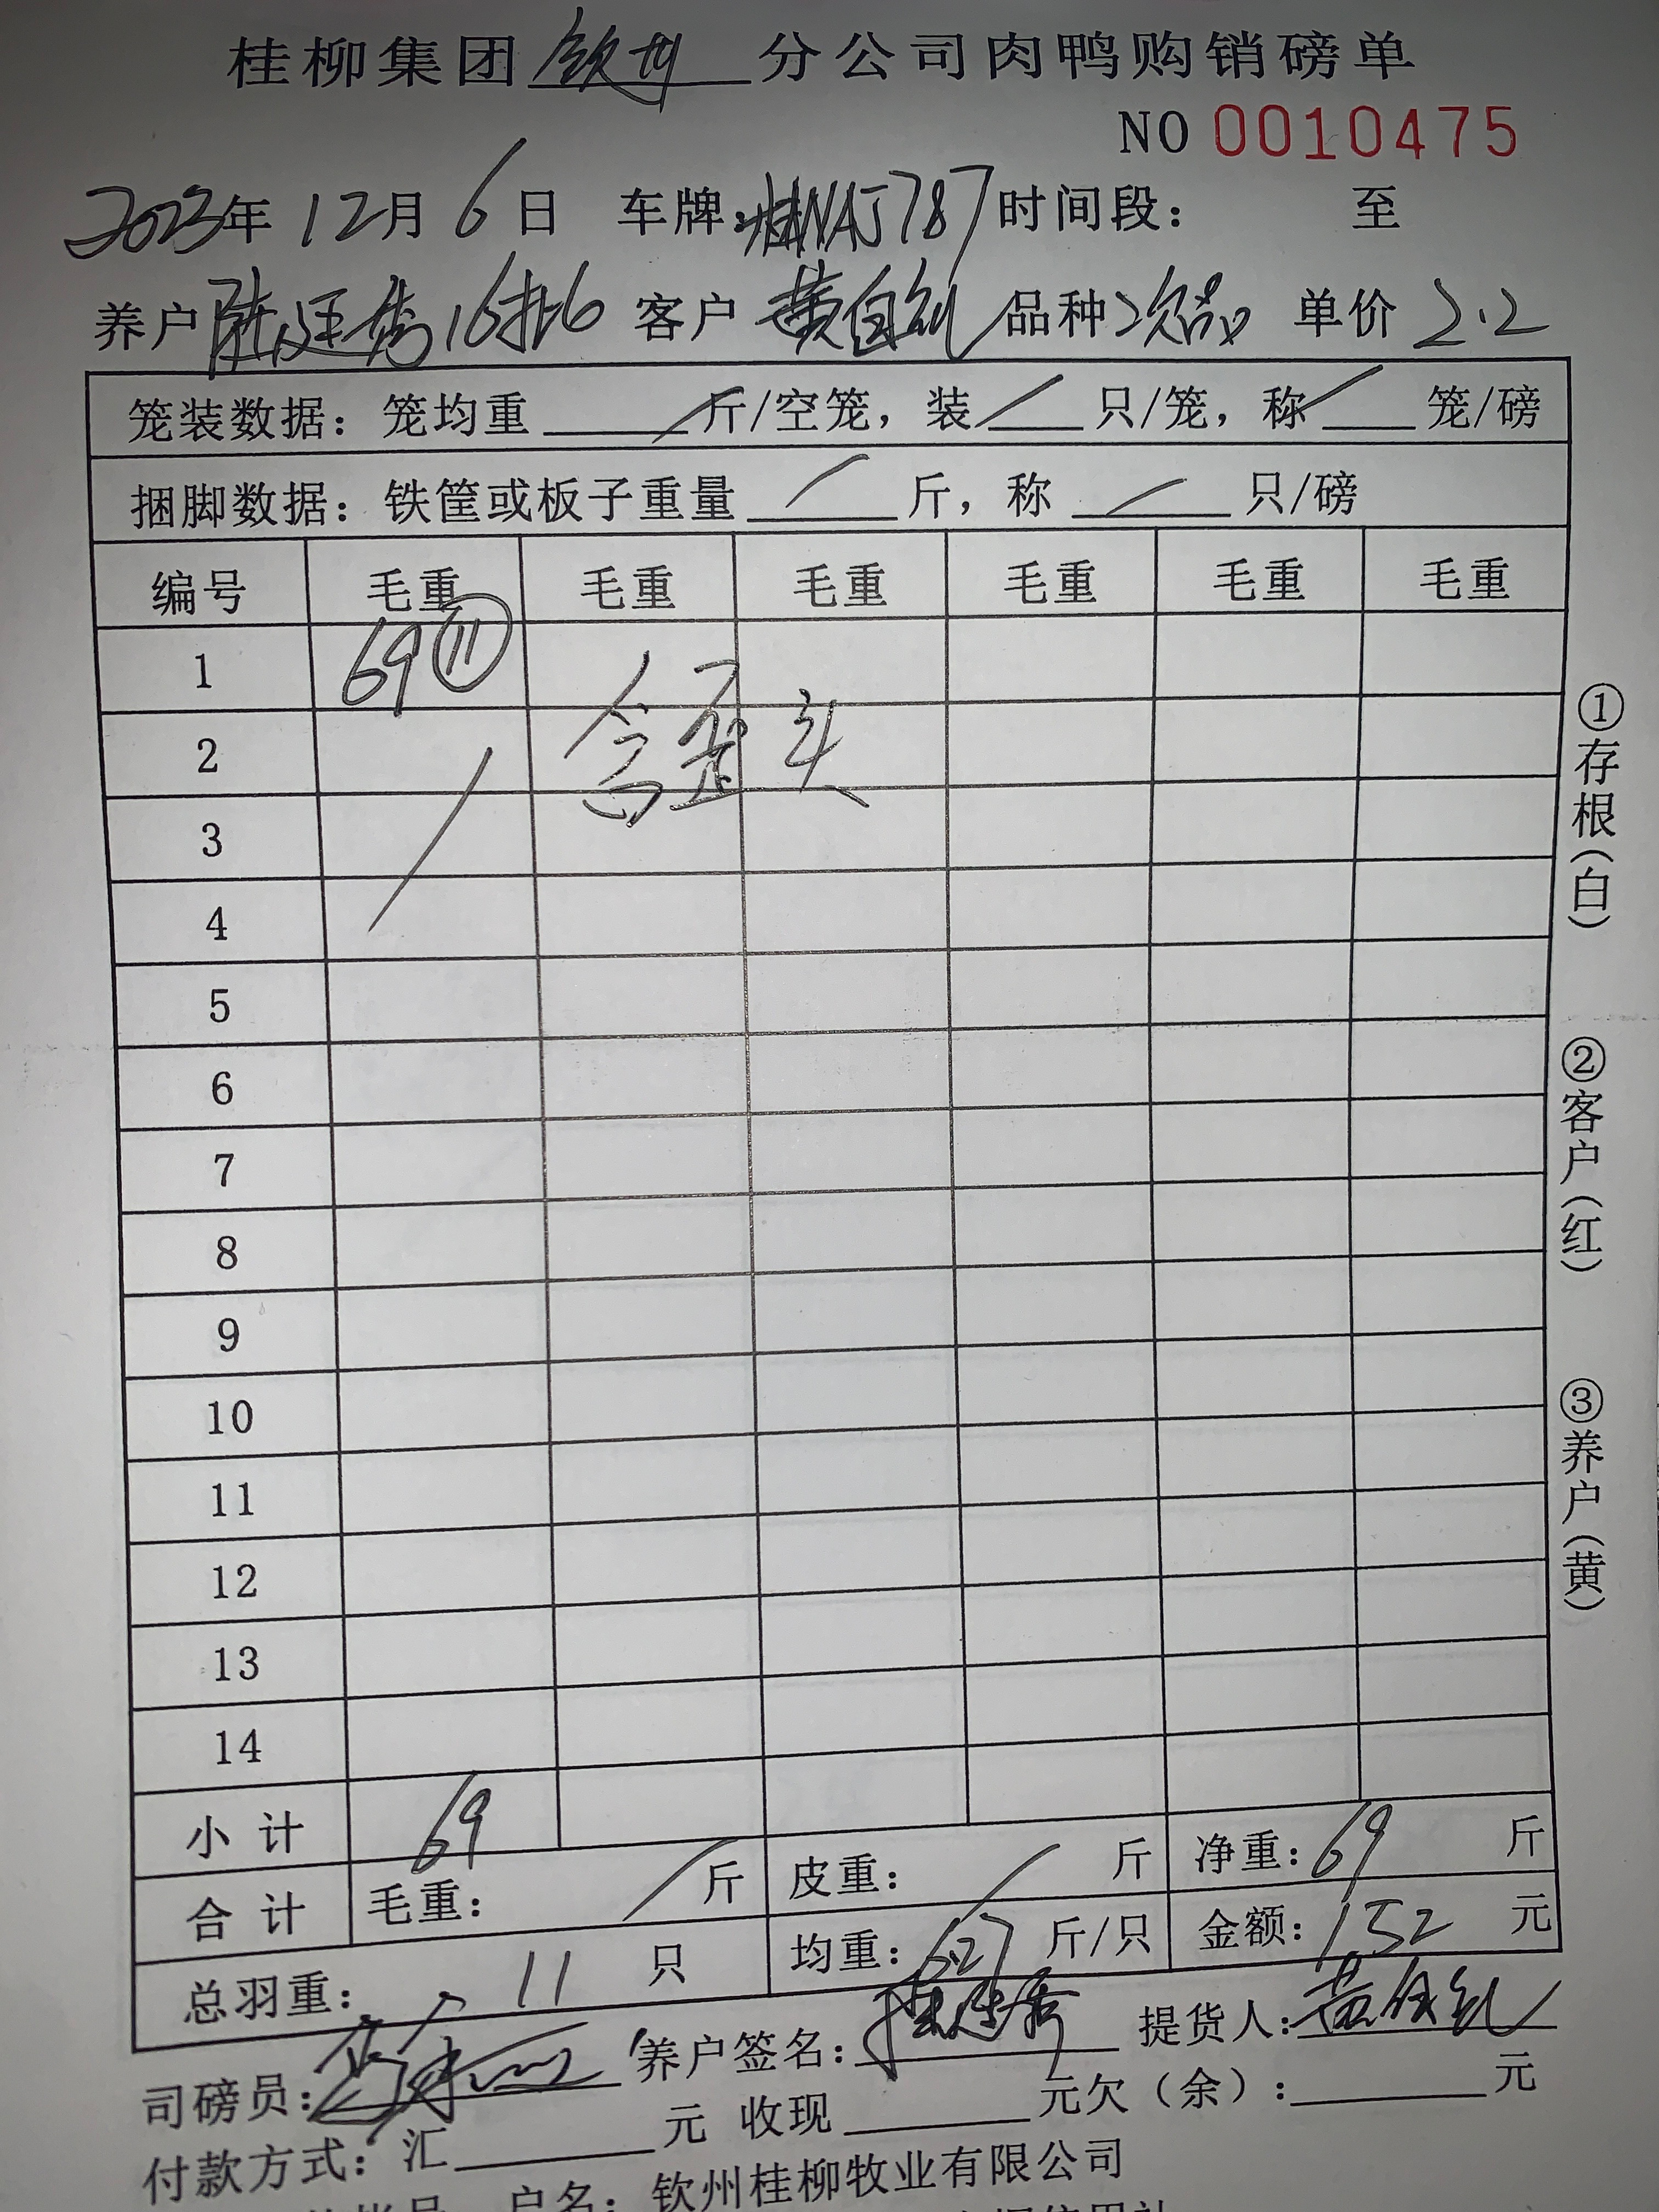 桂柳集团钦州分公司肉鸭购销磅单
NO 0010475
2023年12月6日 车牌:桂NAJ787 时间段: 至
养户 陆廷秀16批6 客户 黄自 品种 次品 单价 2.2
笼装数据: 笼均重 / 斤/空笼, 装 / 只/笼, 称 / 笼/磅
捆脚数据: 铁筐或板子重量 / 斤, 称 / 只/磅
编号 毛重 毛重 毛重 毛重 毛重 毛重
1 69 ⑪
含歪头
2
3
4
5
6
7
8
9
10
11
12
13
14
小计 69
合计 毛重: / 斤 皮重: / 斤 净重: 69 斤
总羽重: 11 只 均重: 6.27 斤/只 金额: 152 元
司磅员: 养户签名: 陆廷秀 提货人: 黄
付款方式: 汇 元 收现 元欠(余): 元
户名: 钦州桂柳牧业有限公司
①存根(白)
②客户(红)
③养户(黄)